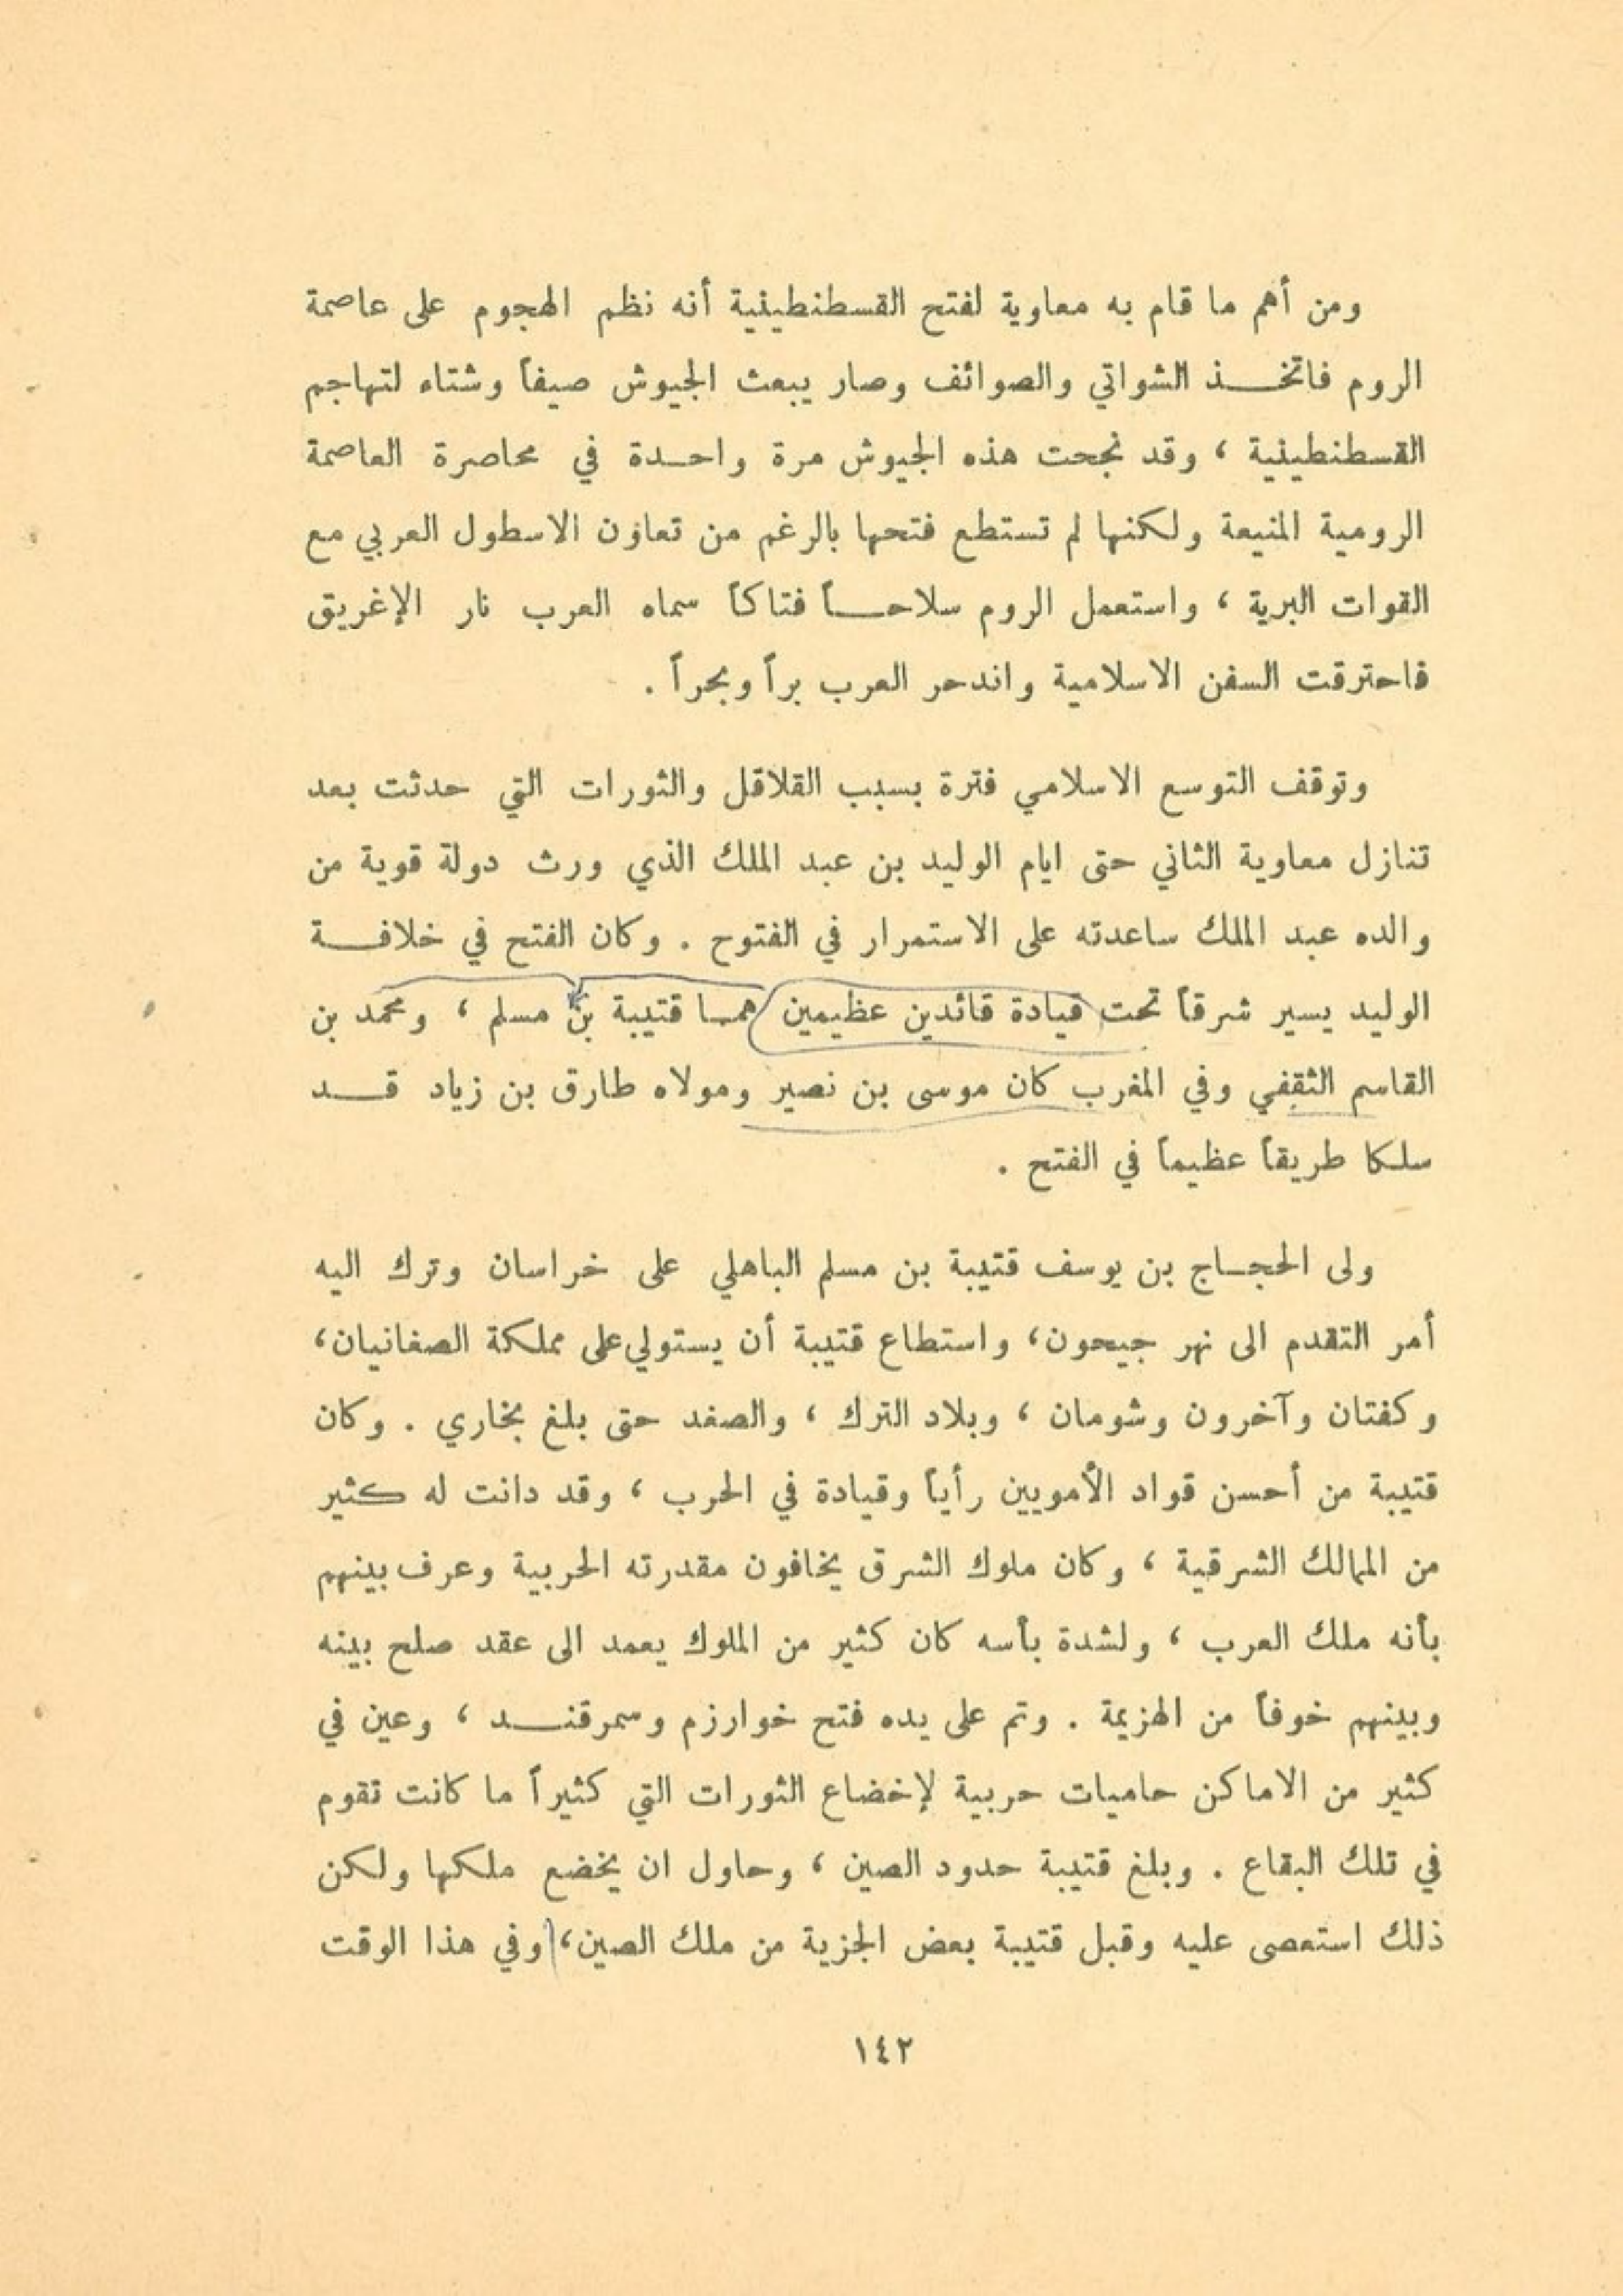 ومن أهم ما قام به معاوية لفتح القسطنطينية أنه نظم الهجوم على عاصمة
الروم فاتخذ الشواتي والصوائف وصار يبعث الجيوش صيفاً وشتاء لتهاجم
القسطنطينية ، وقد نجحت هذه الجيوش مرة واحدة في محاصرة العاصمة
الرومية المنيعة ولكنها لم تستطع فتحها بالرغم من تعاون الاسطول العربي مع
القوات البرية ، واستعمل الروم سلاحاً فتاكاً سماه العرب نار الإغريق
فاحترقت السفن الاسلامية واندحر العرب براً وبحراً .
وتوقف التوسع الاسلامي فترة بسبب القلاقل والثورات التي حدثت بعد
تنازل معاوية الثاني حتى ايام الوليد بن عبد الملك الذي ورث دولة قوية من
والده عبد الملك ساعدته على الاستمرار في الفتوح . وكان الفتح في خلافة
الوليد يسير شرقاً تحت قيادة قائدين عظيمين هما قتيبة بن مسلم ، ومحمد بن
القاسم الثقفي وفي المغرب كان موسى بن نصير ومولاه طارق بن زياد قد
سلكا طريقاً عظيماً في الفتح .
ولى الحجاج بن يوسف قتيبة بن مسلم الباهلي على خراسان وترك اليه
أمر التقدم الى نهر جيحون، واستطاع قتيبة أن يستولي على مملكة الصغانيان،
وكفتان وآخرون وشومان ، وبلاد الترك ، والصغد حتى بلغ بخاري . وكان
قتيبة من أحسن قواد الأمويين رأياً وقيادة في الحرب ، وقد دانت له كثير
من الممالك الشرقية ، وكان ملوك الشرق يخافون مقدرته الحربية وعرف بينهم
بأنه ملك العرب ، ولشدة بأسه كان كثير من الملوك يعمد الى عقد صلح بينه
وبينهم خوفاً من الهزيمة . وتم على يده فتح خوارزم وسمرقند ، وعين في
كثير من الاماكن حاميات حربية لإخضاع الثورات التي كثيراً ما كانت تقوم
في تلك البقاع . وبلغ قتيبة حدود الصين ، وحاول ان يخضع ملكها ولكن
ذلك استعصى عليه وقبل قتيبة بعض الجزية من ملك الصين، وفي هذا الوقت
١٤٢